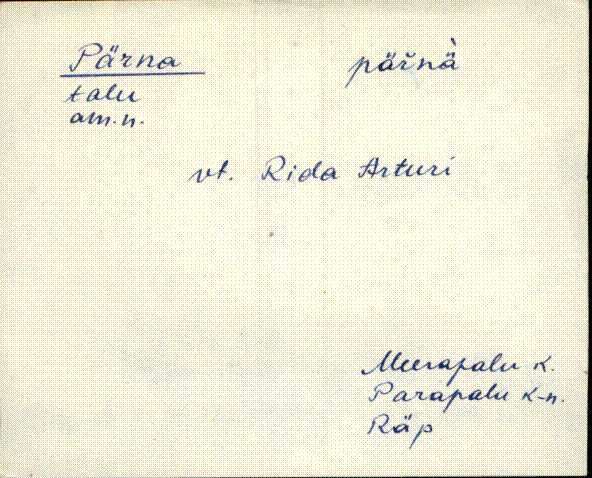 Pärna päřnà̈
talu
am.n.
vt. Rida Arturi
Meerapalu k.
Parapalu k-n.
Räp